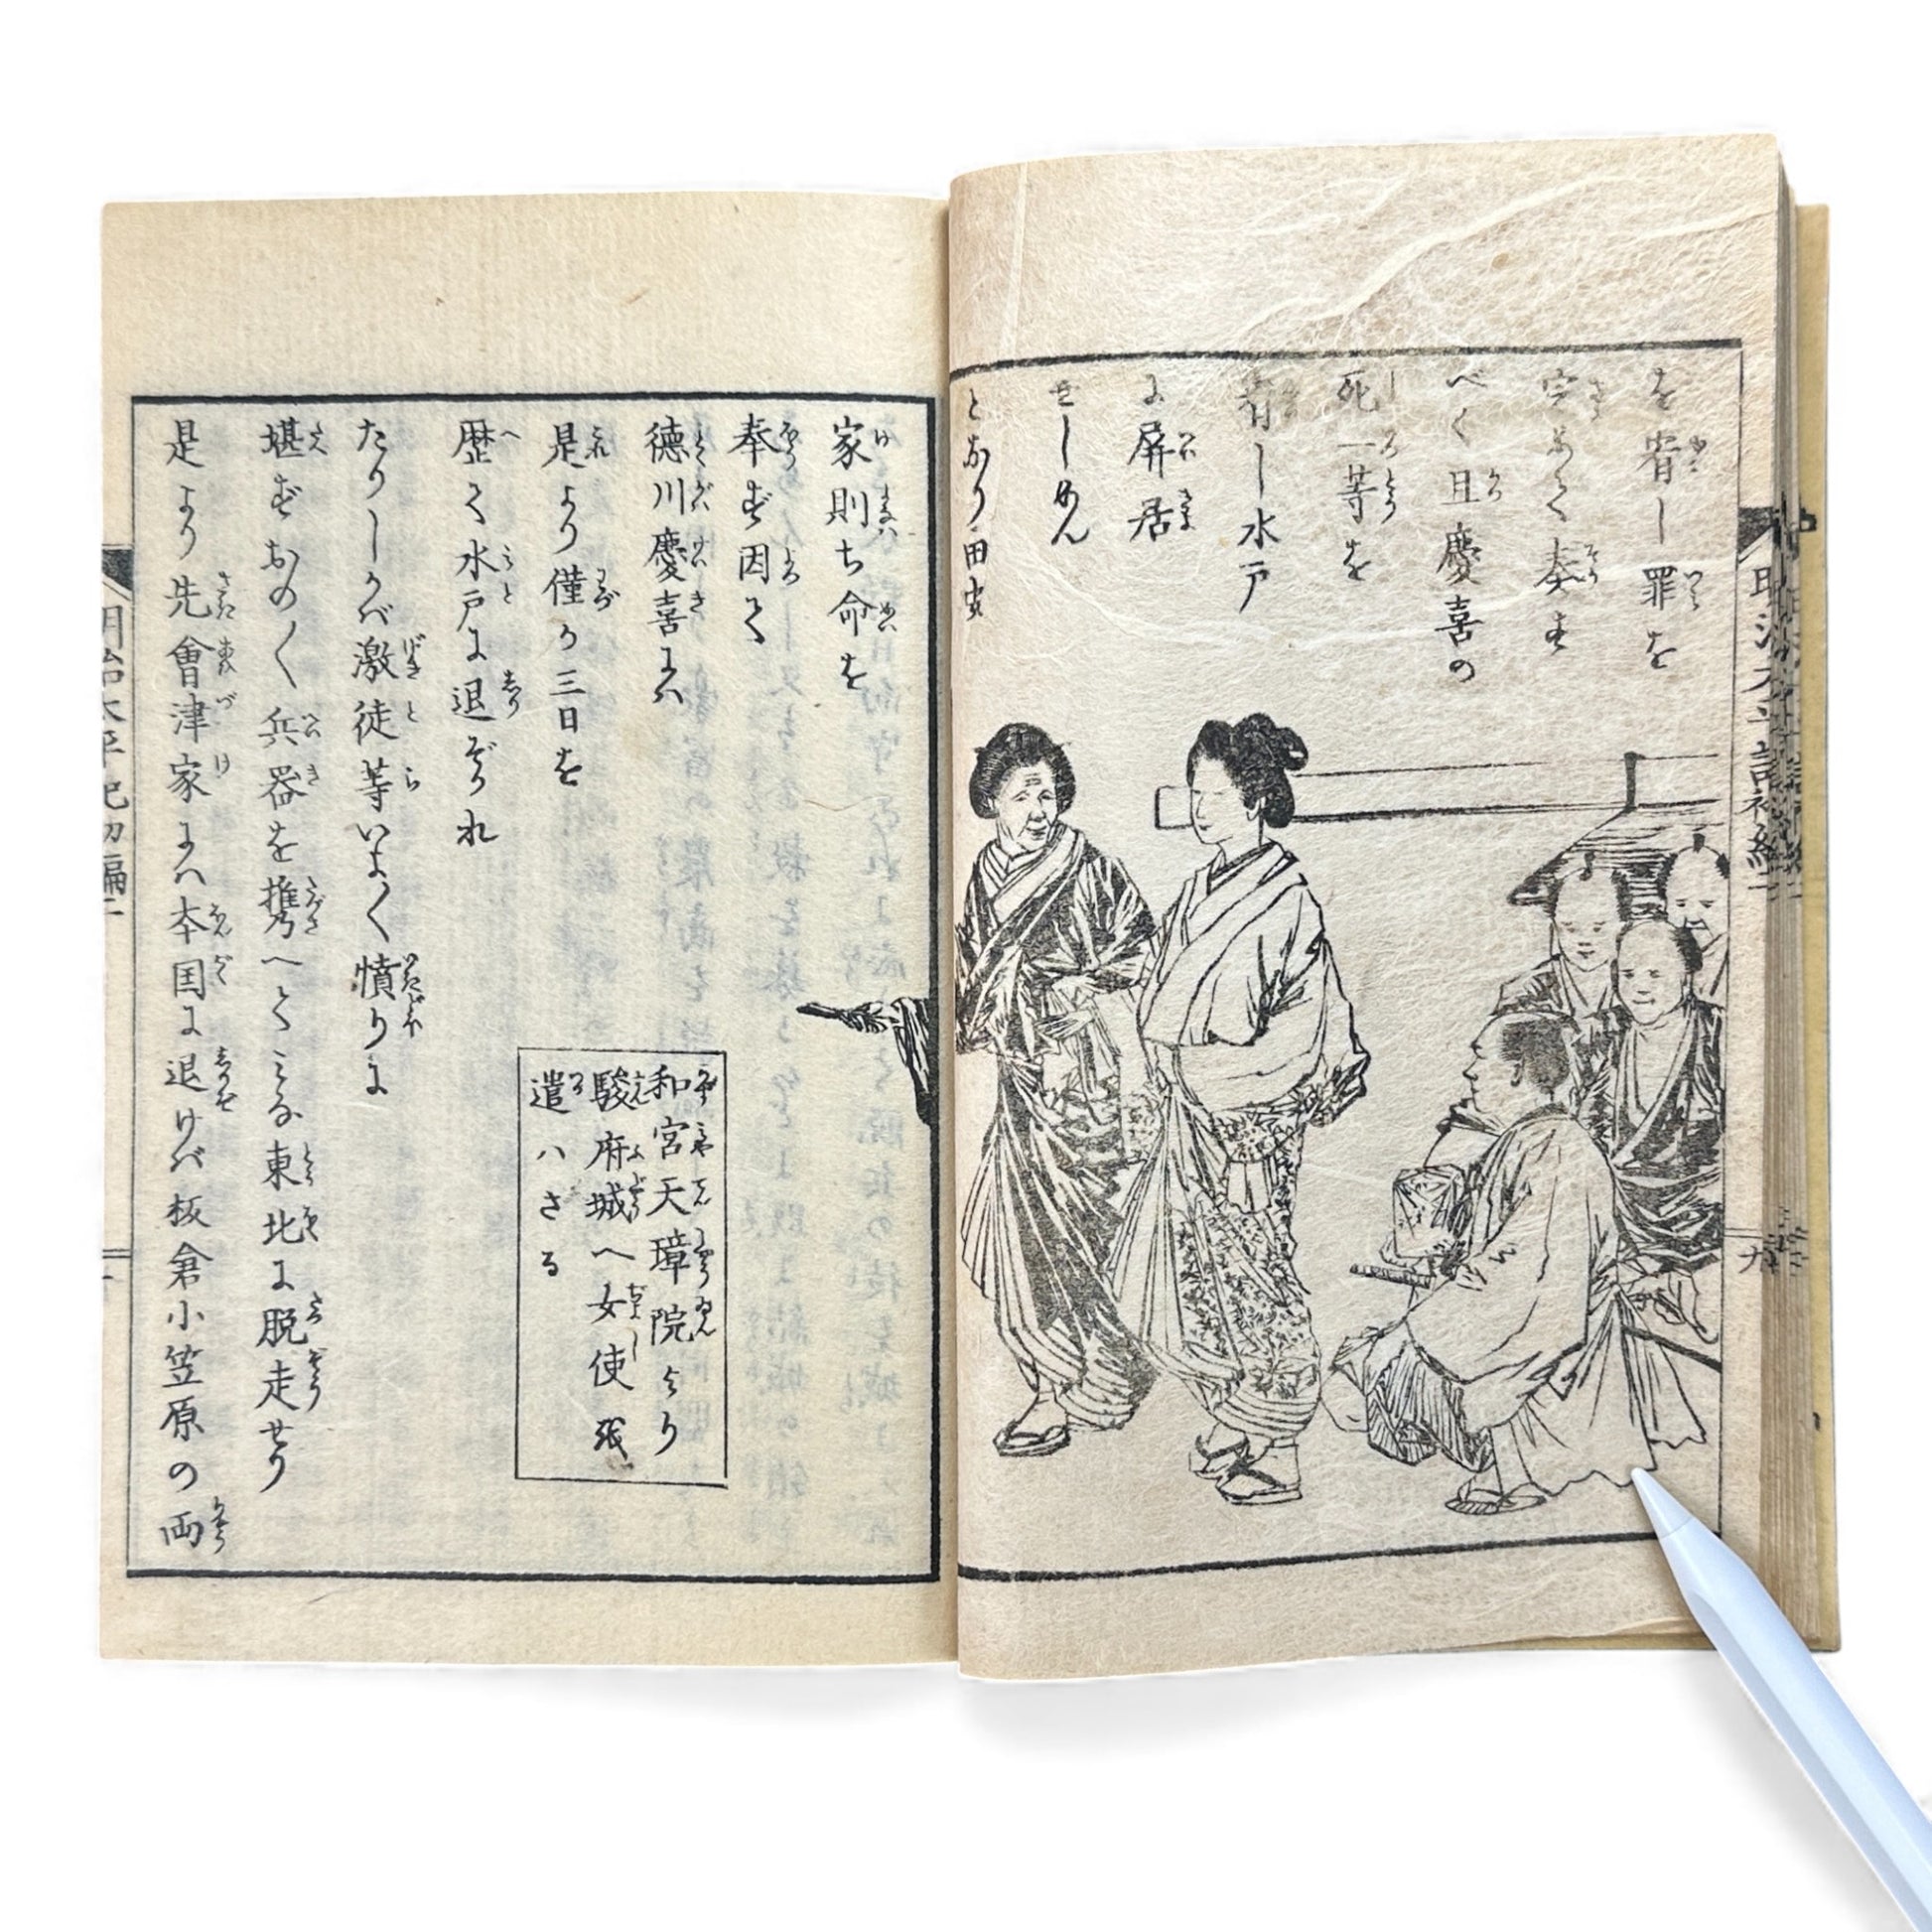 を宥し罪を
べく且慶喜の
死一等を
宥し水戸
に屏居
せしめん
となり田安
家則ち命を
奉ず因て
徳川慶喜には
是より僅か三日を
歴て水戸に退ぞかれ
たりしかば激徒等いよ〳〵憤りに
堪ずおの〳〵兵器を携へてみな東北に脱走せり
是より先會津家には本国に退けば板倉小笠原の両
和宮天璋院より
駿府城へ女使を
遣ハさる
明治太平記初編